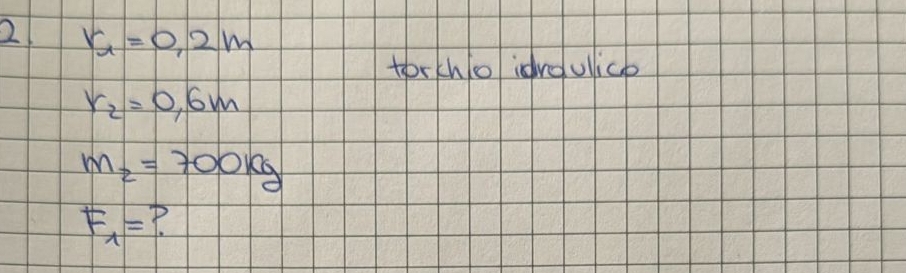 2. r₁ = 0,2m
torchio idraulico
r₂ = 0,6m
m₂ = 700kg
F₁ = ?